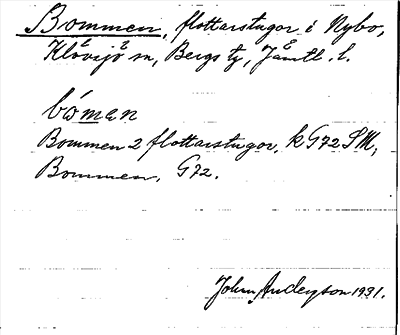 Bommen, flottarstugor i Nybo,
Klövsjö sn, Bergs tg, Jämtl. l.
bóman
Bommen 2 flottarstugor, k G72 SM;
Bommen, G72.
John Anderson 1931.